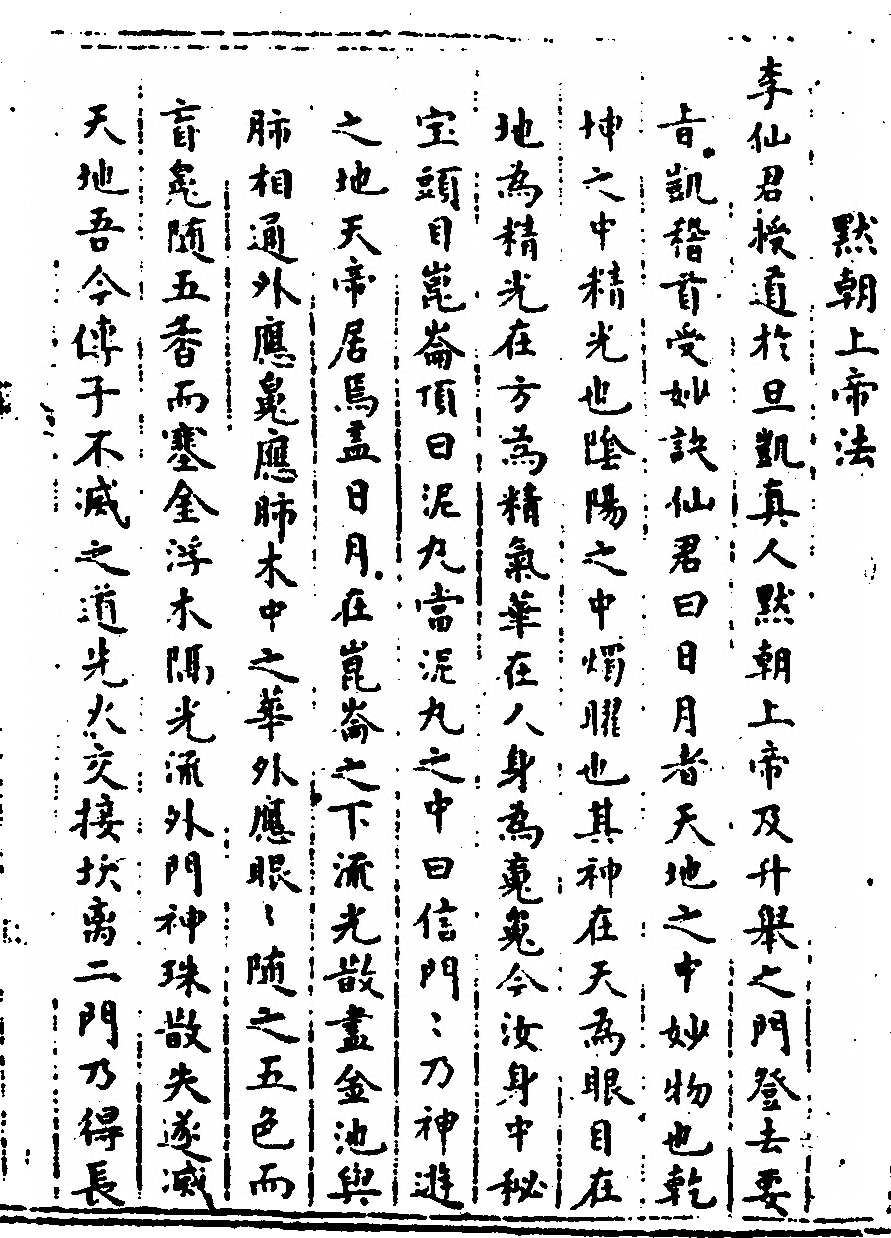 默朝上帝法
李仙君授道於旦凱真人默朝上帝及升舉之門登去要
旨凱稽首受妙訣仙君曰日月者天地之中妙物也乾
坤之中精光也陰陽之中燭耀也其神在天為眼目在
地為精光在方為精氣華在人身為䰟鬼今汝身中秘
宝頭目崑崙頂曰泥丸當泥丸之中曰信門〻乃神遊
之地天帝居焉盖日月在崑崙之下流光散盡金池與
肺相通外應鬼應肺木中之華外應眼〻随之五色而
盲鬼随五香而塞金浮木隔光流外門神珠散失遂滅
天地吾今傳子不滅之道先火交接坎离二門乃得長